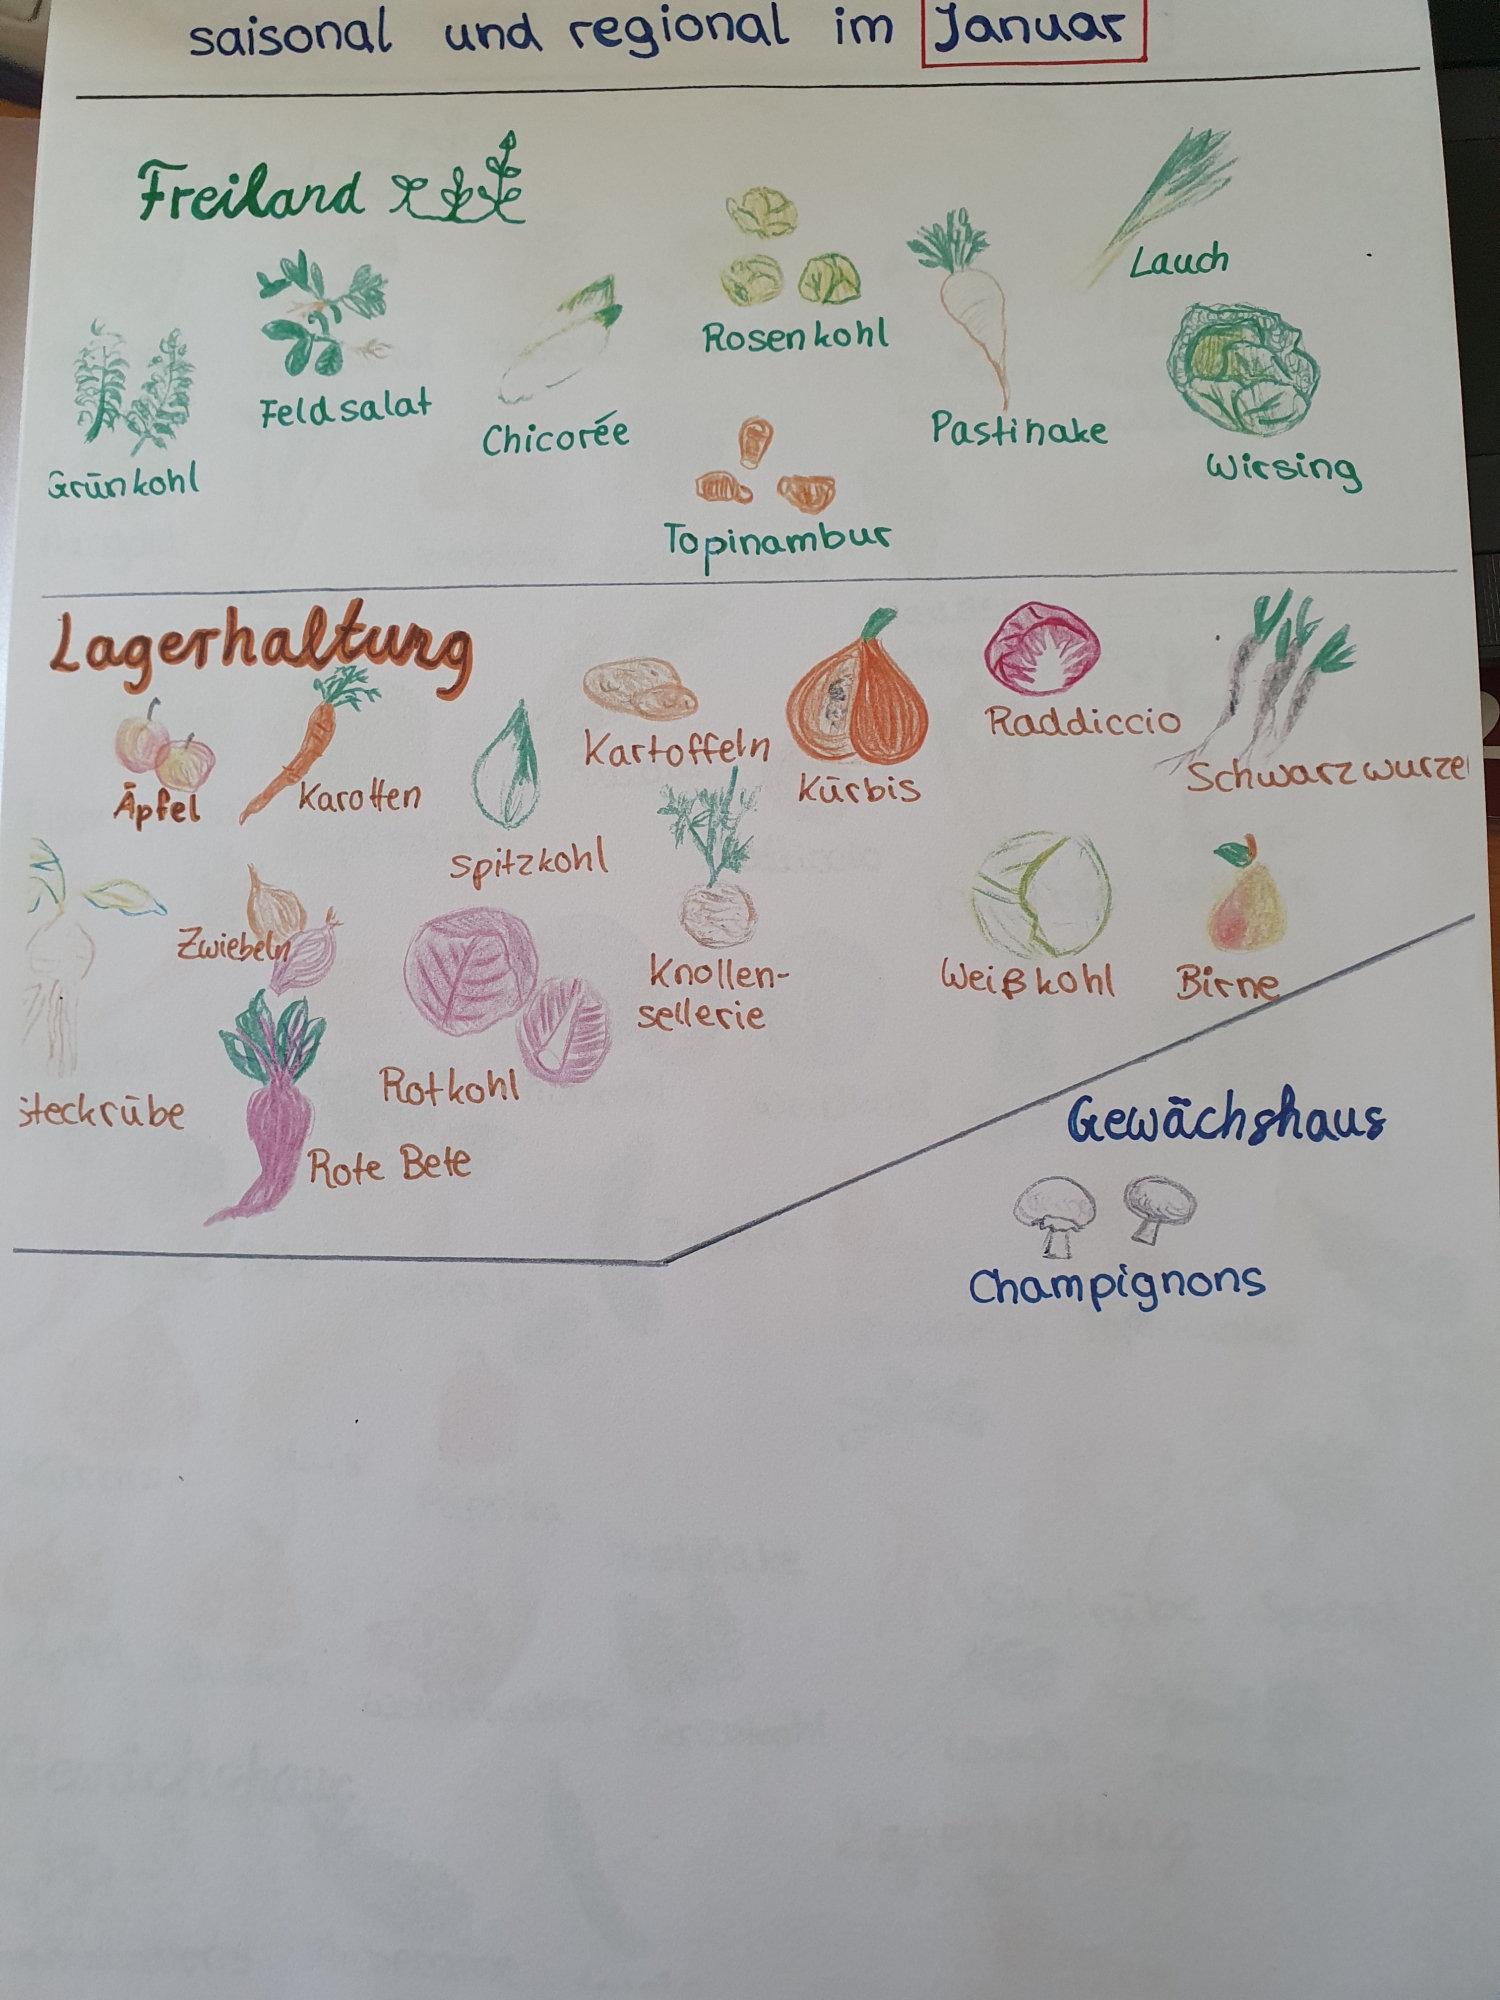 saisonal und regional im Januar
Freiland
Lauch
Rosenkohl
Feldsalat
Chicorée
Pastinake
Grünkohl
Wirsing
Topinambur
Lagerhaltung
Kartoffeln
Raddiccio
Schwarzwurzel
Äpfel
Karotten
Kürbis
Spitzkohl
Zwiebeln
Knollen-
sellerie
Weißkohl
Birne
Steckrübe
Rotkohl
Rote Bete
Gewächshaus
Champignons